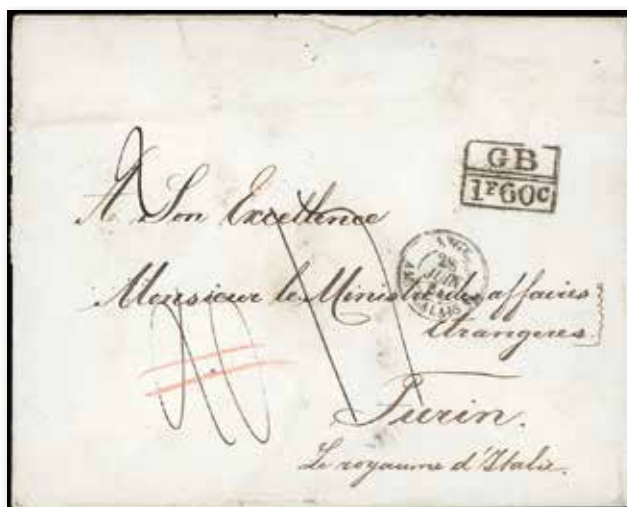 GB
1F60c
A Son Excellence
28
JUIN
Monsieur le Ministre des affaires
étrangères.
Turin.
Le royaume d'Italie.